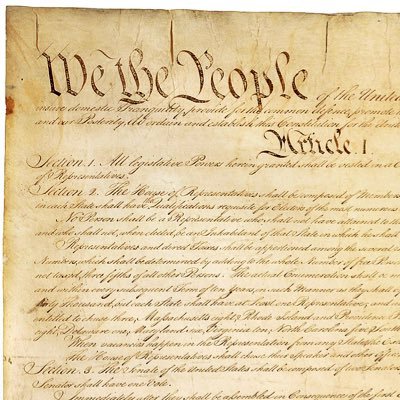 We the People of the United
insure domestic Tranquility, provide for the common defence, promote
and our Posterity, do ordain and establish this Constitution for the United
Article. I.
Section. 1. All legislative Powers herein granted shall be vested in a
of Representatives.
Section. 2. The House of Representatives shall be composed of Members
in each State shall have the Qualifications requisite for Electors of the most numerous
No Person shall be a Representative who shall not have attained to the
and who shall not, when elected, be an Inhabitant of that State in which he shall
Representatives and direct Taxes shall be apportioned among the several
Numbers, which shall be determined by adding to the whole Number of free
not taxed, three fifths of all other Persons. The actual Enumeration shall be
and within every subsequent Term of ten Years, in such Manner as they shall
thirty Thousand, but each State shall have at Least one Representative; and
entitled to chuse three, Massachusetts eight, Rhode Island and Providence
eight, Delaware one, Maryland six, Virginia ten, North Carolina five, South
When vacancies happen in the Representation from any State, the
The House of Representatives shall chuse their Speaker and other
Section. 3. The Senate of the United States shall be composed of two Senators
Senator shall have one Vote.
Immediately after they shall be assembled in Consequence of the first